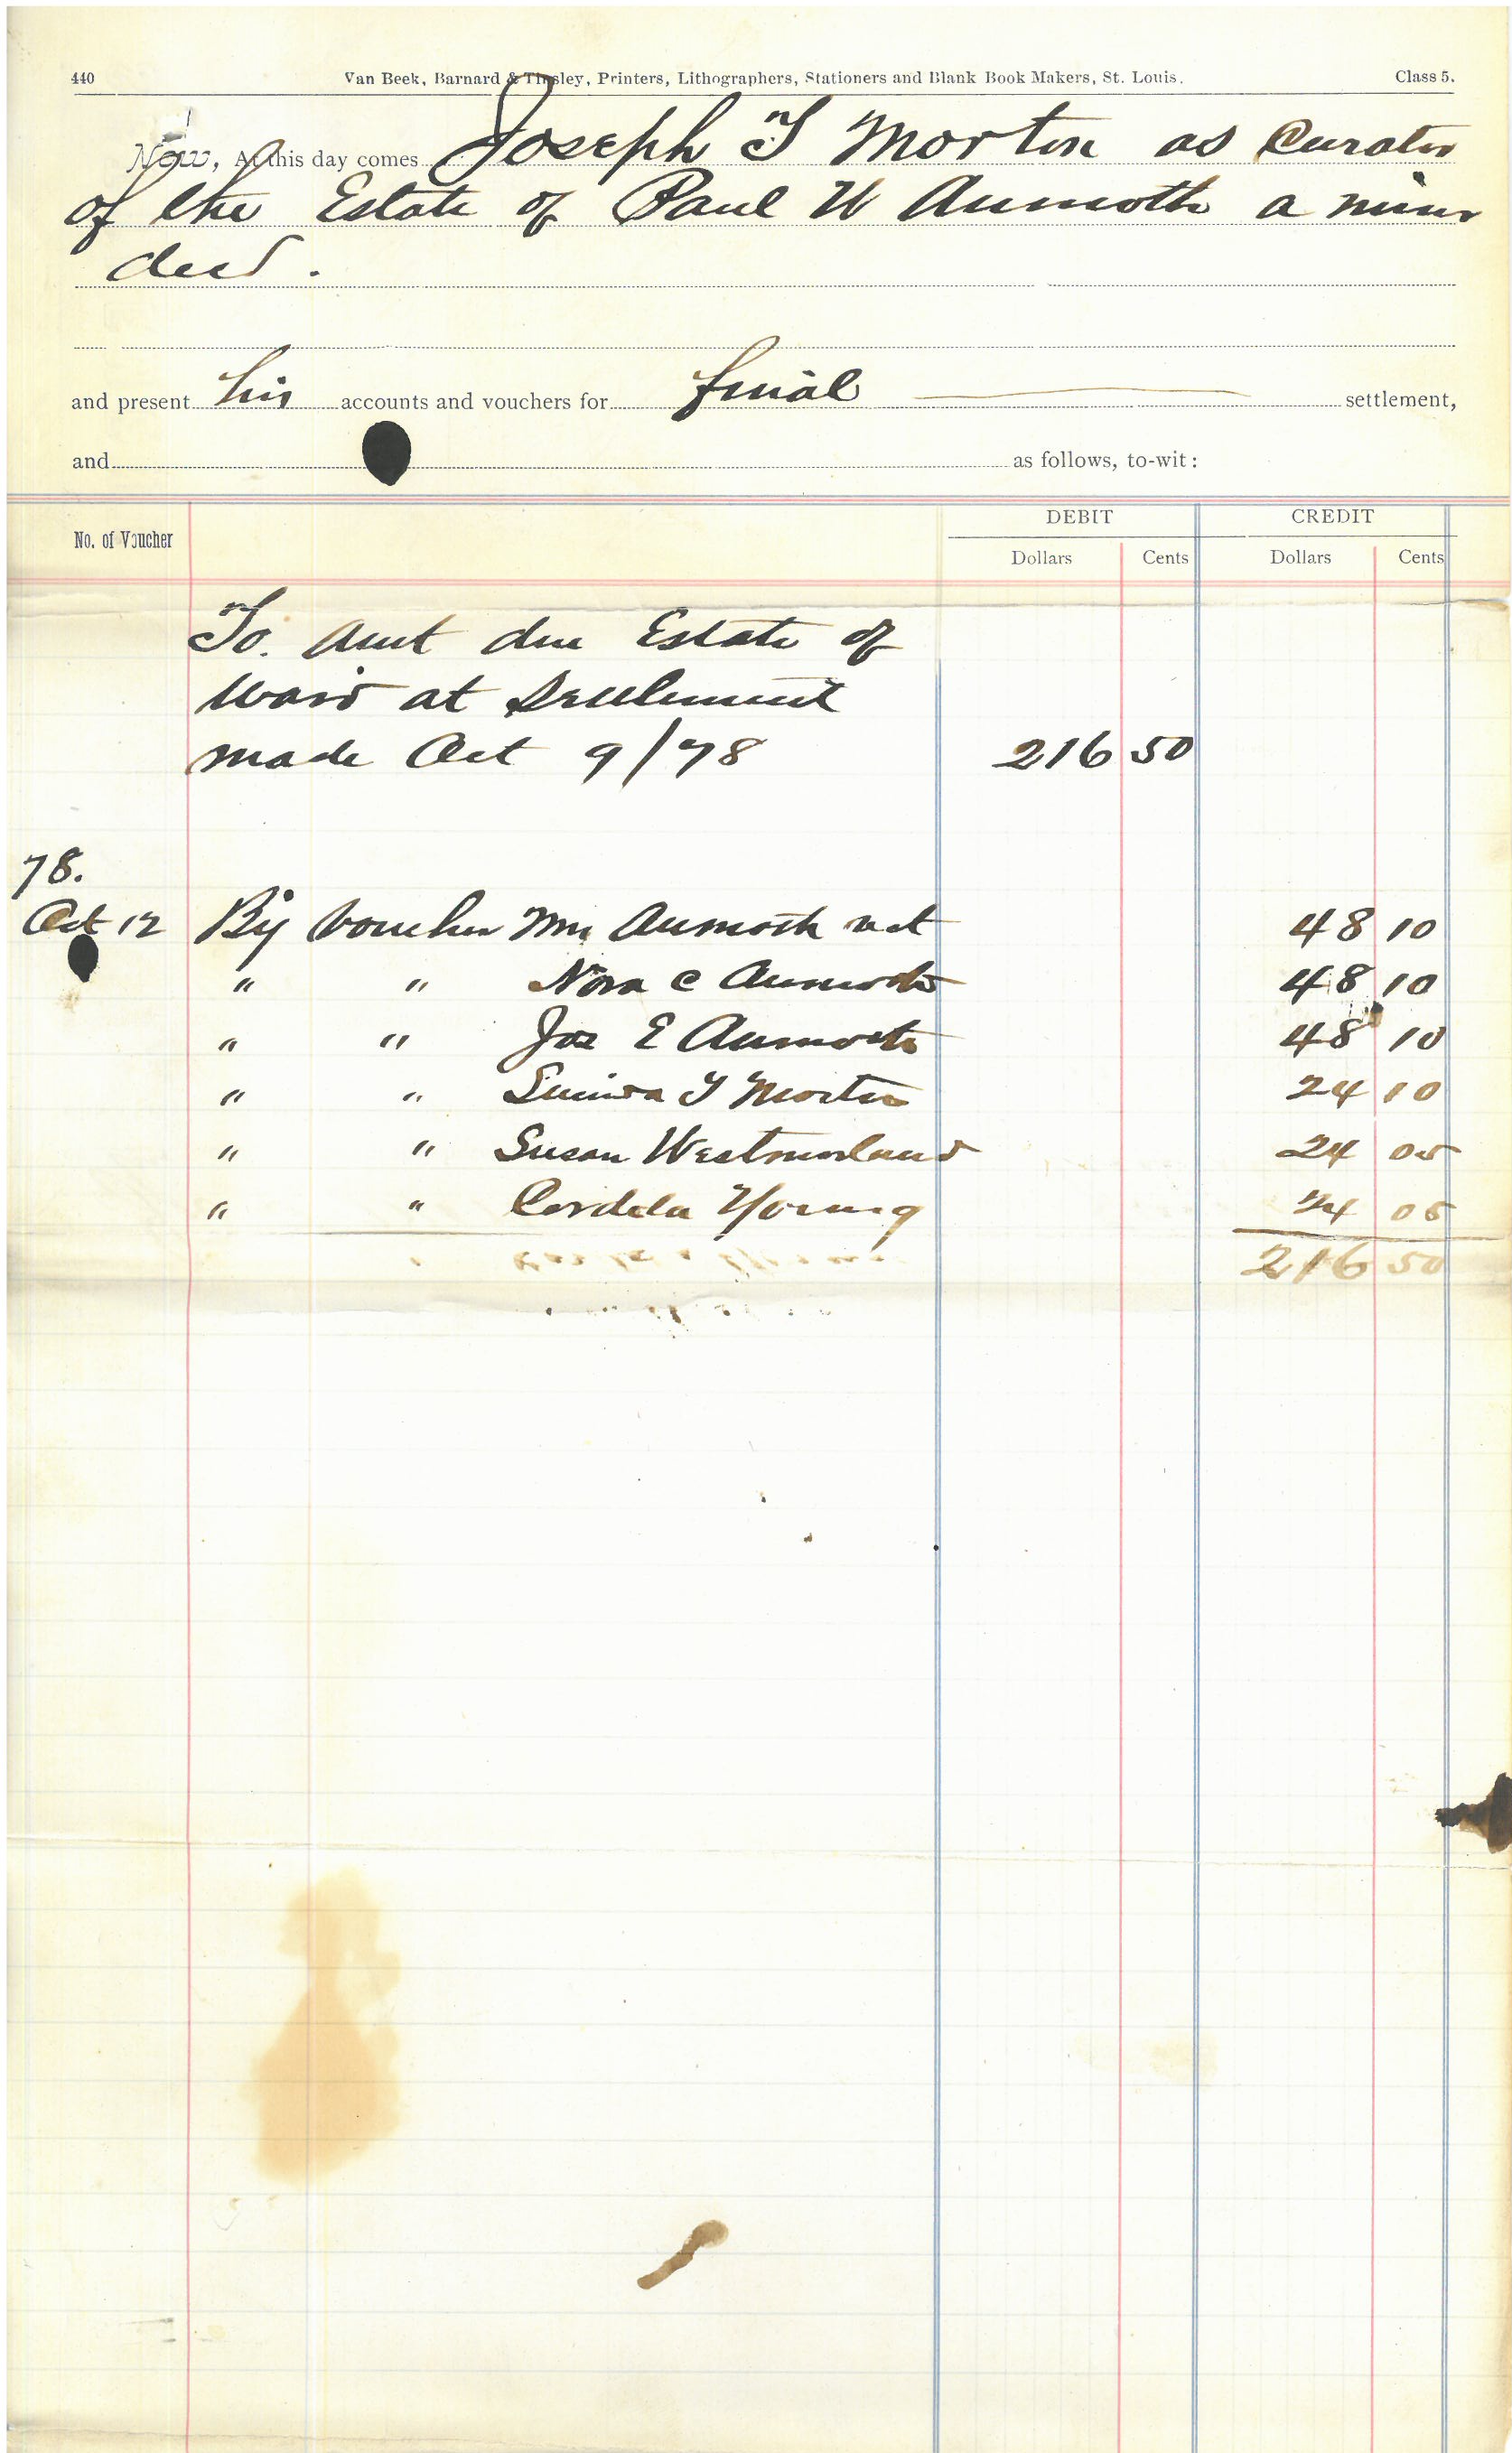 440 Van Beek, Barnard & Tinsley, Printers, Lithographers, Stationers and Blank Book Makers, St. Louis. Class 5.
Now, At this day comes Joseph T Morton as Curator
of the Estate of Paul W Aumoth a minor
decd.
and present his accounts and vouchers for final settlement,
and as follows, to-wit:
DEBIT CREDIT
No. of Voucher Dollars Cents Dollars Cents
To. Amt due Estate of
Ward at Settlement
made Oct 9/78 216 50
78.
Oct 12 By Voucher Aumoth 48 10
" " Nora C Aumoth 48 10
" " Jos E Aumoth 48 10
" " T Morton 24 10
" " Susan Westmorland 24 05
" " Cordela Young 24 05
216 50